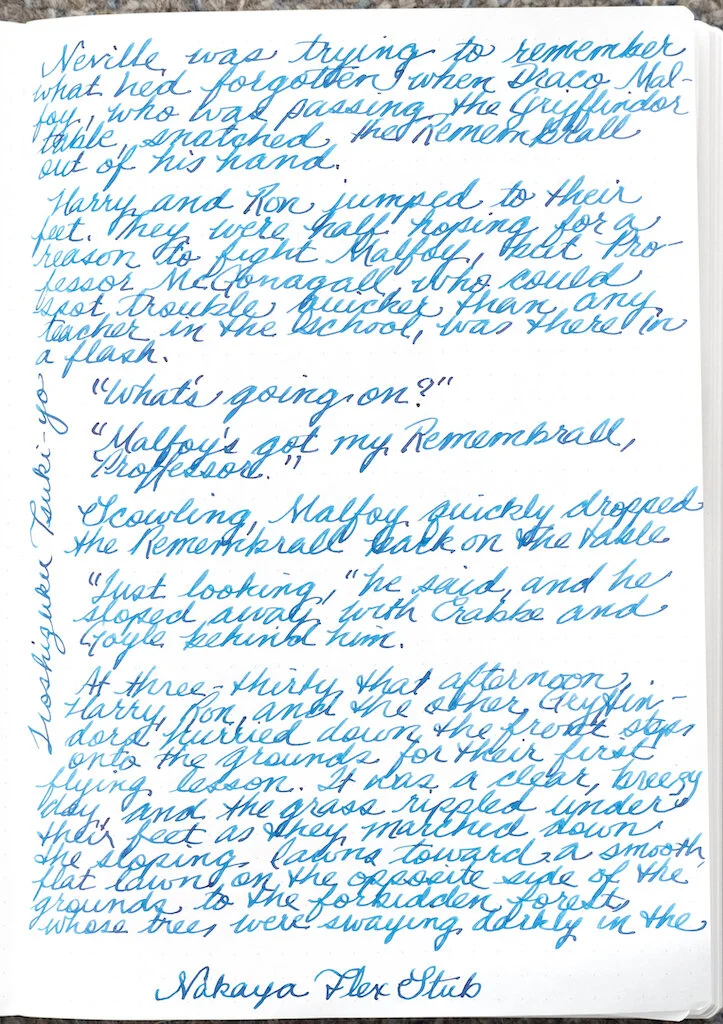 Neville was trying to remember
what he'd forgotten when Draco Mal-
foy, who was passing the Gryffindor
table, snatched the Remembrall
out of his hand.
Harry and Ron jumped to their
feet. They were half hoping for a
reason to fight Malfoy, but Pro-
fessor McGonagall, who could
spot trouble quicker than any
teacher in the school, was there in
a flash.
"What's going on?"
"Malfoy's got my Remembrall,
Proffessor."
Scowling, Malfoy quickly dropped
the Remembrall back on the table
"Just looking," he said, and he
sloped away with Crabbe and
Goyle behind him.
At three-thirty that afternoon,
Harry, Ron, and the other Gryffin-
dors hurried down the front steps
onto the grounds for their first
flying lesson. It was a clear, breezy
day, and the grass rippled under
their feet as they marched down
the sloping lawns toward a smooth,
flat lawn on the opposite side of the
grounds to the forbidden forest,
whose trees were swaying darkly in the
Iroshizuku Tsuki-yo
Nakaya Flex Stub